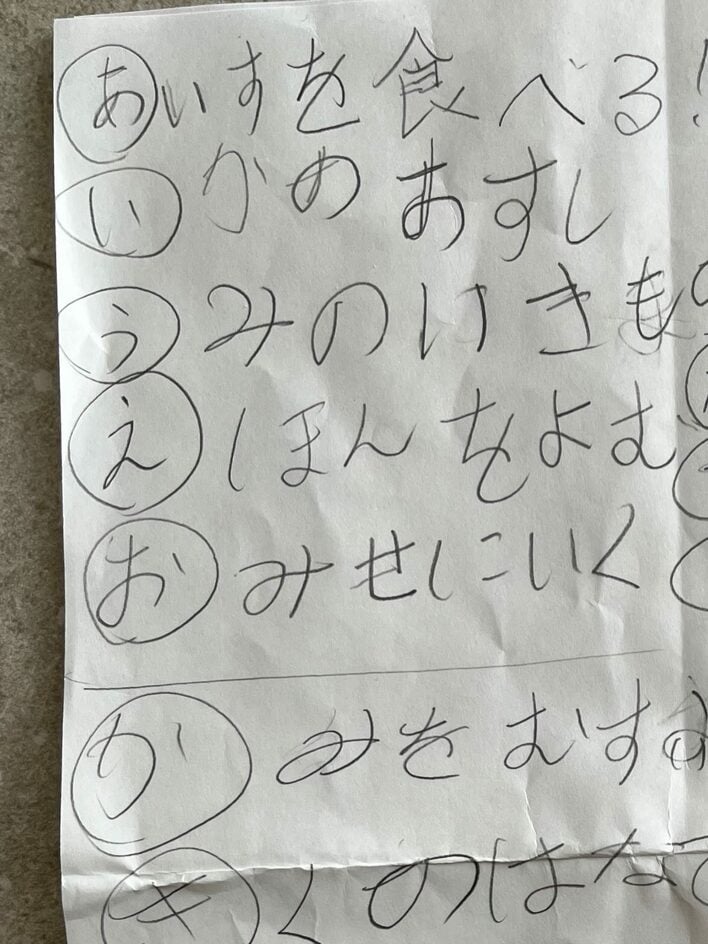 あいすを食べる!
いかのおすし
うみのいきもの
えほんをよむ
おみせにいく
かみをむすぶ
きくのはな